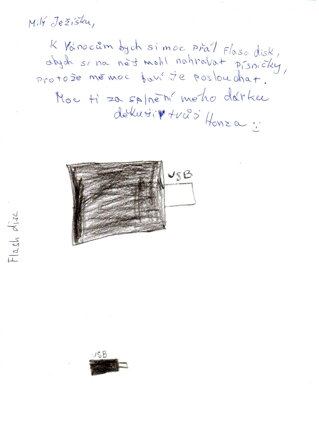 Milý Ježíšku,
K Vánocům bych si moc přál Flash disk,
abych si na něj mohl nahrávat písničky,
protože mě moc baví je poslouchat.
Moc ti za splnění mého dárku
děkuji tvůj Honza
USB
Flash disc
USB